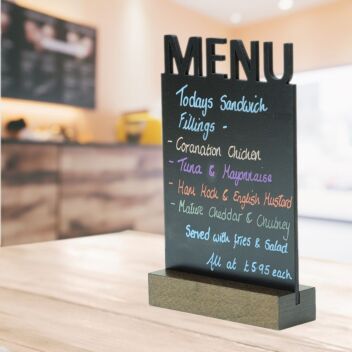 MENU
Todays Sandwich
Fillings -
- Coronation Chicken
- Tuna & Mayonnaise
- Ham Hock & English Mustard
- Mature Cheddar & Chutney
Served with fries & Salad
All at £5.95 each